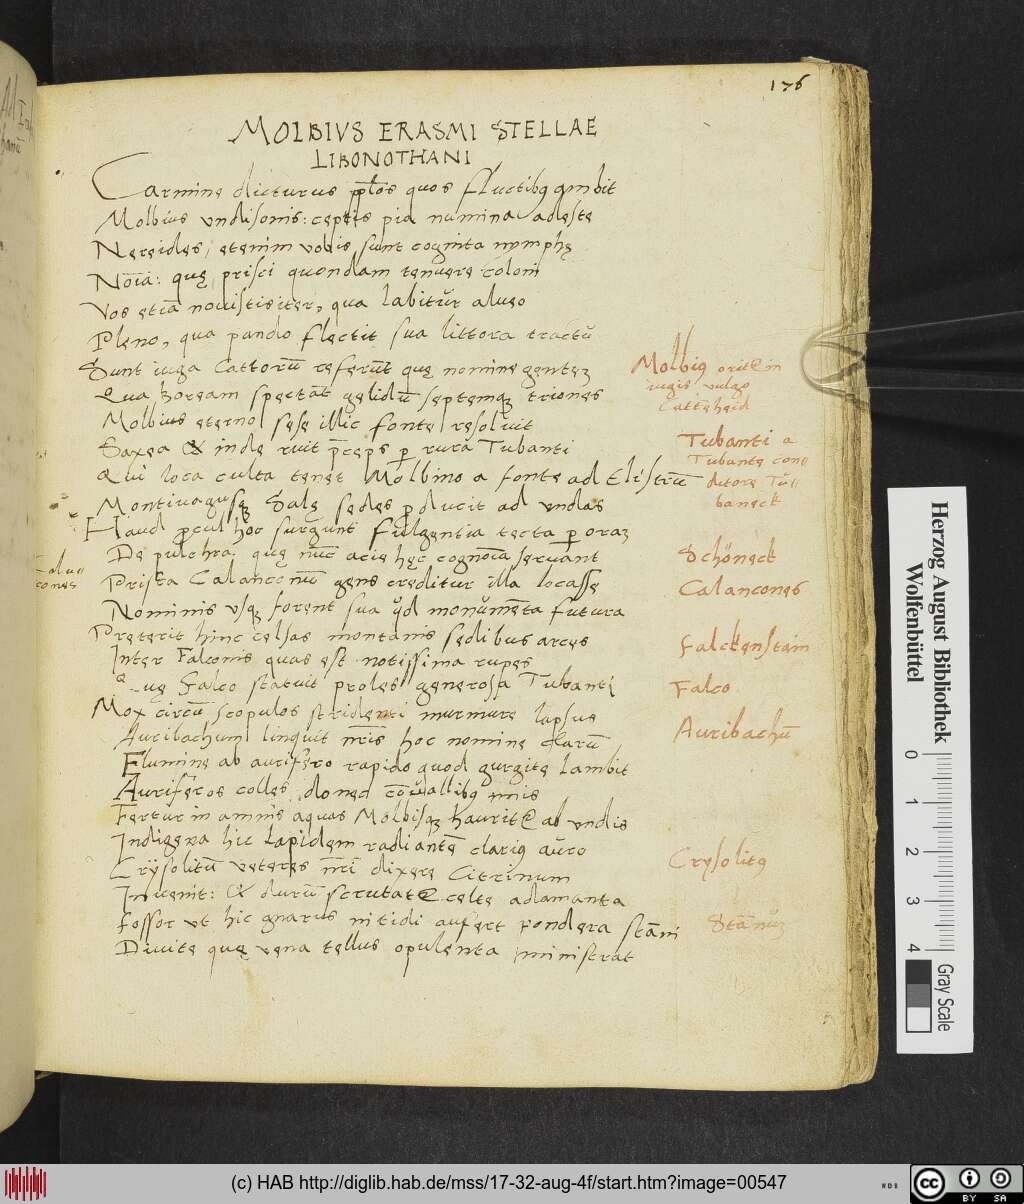 176
MOLBIVS ERASMI STELLAE
LIBONOTHANI
Carmine dicturus pplos quos fluctibꝫ ambit
Molbius vndisonis: ceptis pia numina adeste
Nereides, etenim vobis sunt cognita nymphę
Noīa: quę prisci quondam tenuere coloni
Vos etiā nouistis iter, qua labitur alueo
Pleno, qua pando flectit sua littora tractū
Sunt iuga Cattorū referūt quę nomine gentes
Qua Boream spectāt gelidū septemqꝫ triones
Molbius eterno sese illic fonte resoluit
Saxea & inde ruit p̄ceps p rura Tubanti
Qui loca culta tenet Molbino a fonte ad Elistrū
Montiuagusqꝫ Salę sedes pducit ad vndas
Haud pcul hoc surgunt fulgentia tecta p oras
De pulchra quę nūc acie hęc cognoīa seruant
Prisca Calanconū gens creditur illa locasse
Nominis vsqꝫ forent sua qd monumēta futura
Preterit hinc celsas montanis sedibus arces
Inter Falconis quas est notissima rupes
Falco statuit proles generosa Tubanti
Mox circū scopulos stridenti murmure lapsus
Auribachum linquit nr̄is hoc nomine clarū
Flumine ab aurifero rapido quod gurgite lambit
Auriferos colles donec cōuallibꝫ imis
Fertur in amnis aquas Molbisqꝫ haurit ab vndis
Indigena hic lapidem radiantē clariꝫ auro
Crysolitū veteres nr̄i dixere Citrinum
Inuenit: & durū scrutat celte adamanta
Fossor vt hic gnarus nitidi aufert pondera stāni
Diuite quę vena tellus opulenta ministrat
Molbiꝫ orit in
iugis vulgo
Cattēheid
Tubanti a
Tubante con
ditore
baneck
Schöneck
Calancones
Falckenstain
Falco
Auribachū
Crysolitꝫ
Stānū
Herzog August Bibliothek
Wolfenbüttel
0
1
2
3
4
Gray Scale
(c) HAB http://diglib.hab.de/mss/17-32-aug-4f/start.htm?image=00547
cc
BY SA